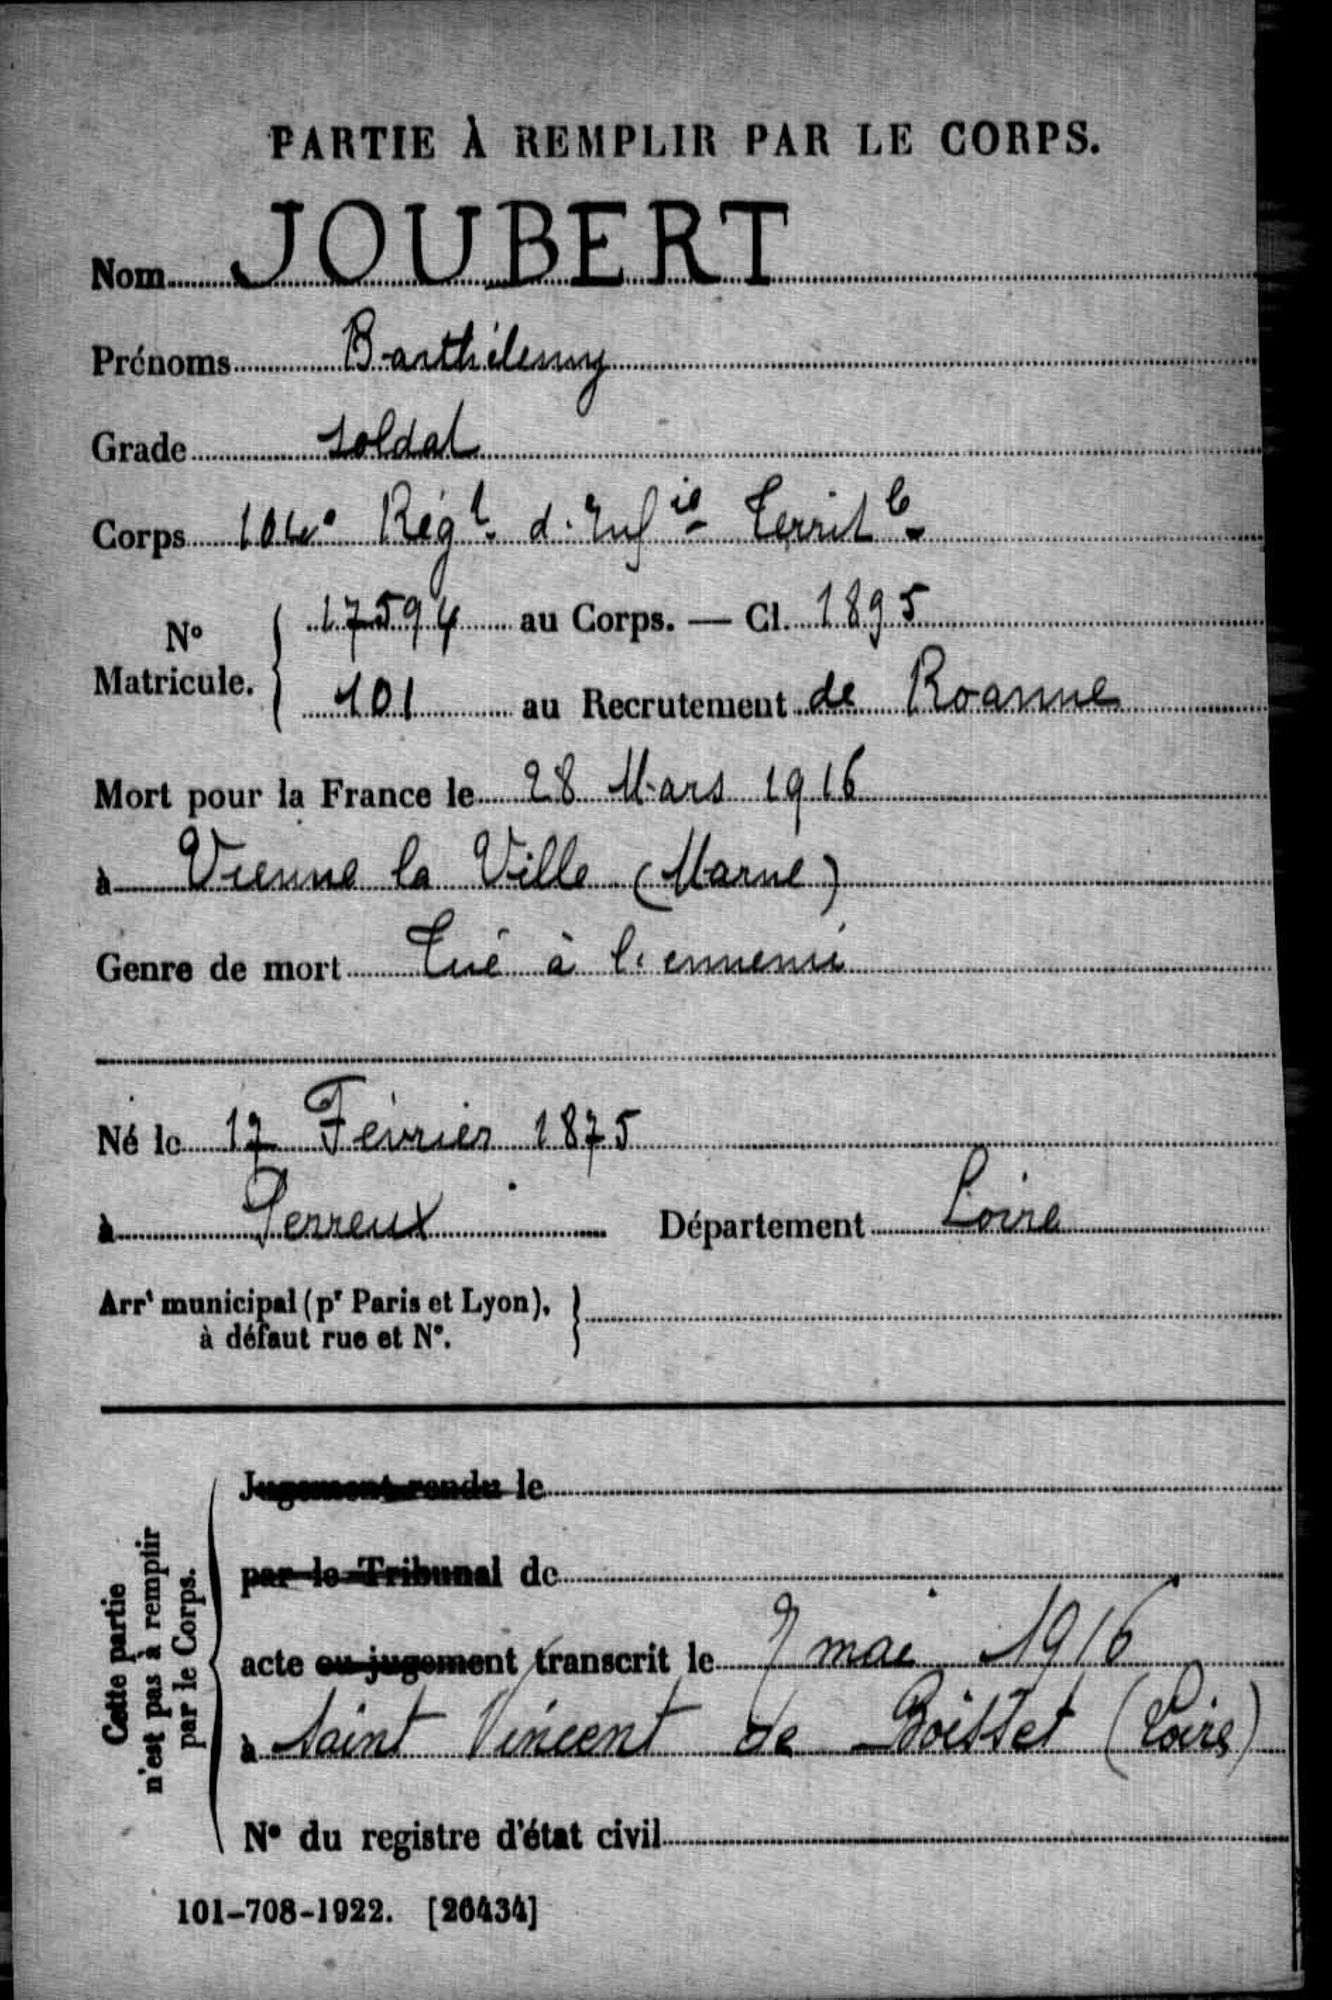 PARTIE À REMPLIR PAR LE CORPS.
Nom JOUBERT
Prénoms Barthélemy
Grade soldat
Corps 104e Régt. d'Infie Territle
No Matricule. 17594 au Corps. — Cl. 1895
101 au Recrutement de Roanne
Mort pour la France le 28 Mars 1916
à Vienne la Ville (Marne)
Genre de mort Tué à l'ennemi
Né le 17 Février 1875
à Perreux Département Loire
Arrt municipal (pr Paris et Lyon),
à défaut rue et No.
Cette partie
n'est pas à remplir
par le Corps.
Jugement rendu le
par le Tribunal de
acte ou jugement transcrit le 7 mai 1916
à Saint Vincent de Boisset (Loire)
No du registre d'état civil
101-708-1922. [26434]